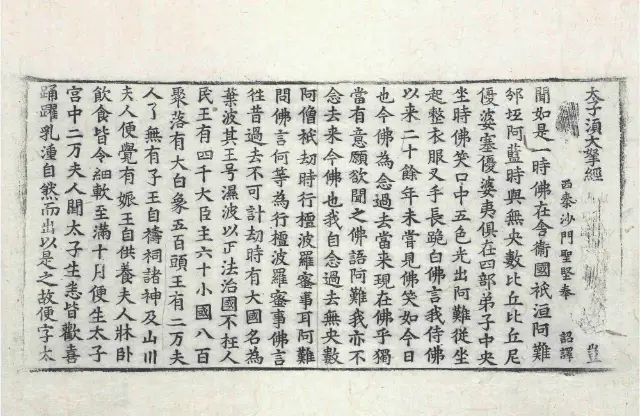 太子湏大拏經
西秦沙門聖堅奉 詔譯
聞如是一時佛在舍衛國祇洹阿難
邠坻阿藍時與無央數比丘比丘尼
優婆塞優婆夷俱在四部弟子中央
坐時佛笑口中五色光出阿難從坐
起整衣服叉手長跪白佛言我侍佛
以來二十餘年未嘗見佛笑如今日
也今佛為念過去當來現在佛乎獨
當有意願欲聞之佛語阿難我亦不
念去來今佛也我自念過去無央數
阿僧祇劫時行檀波羅蜜事耳阿難
問佛言何等為行檀波羅蜜事佛言
往昔過去不可計劫時有大國名為
葉波其王号濕波以正法治國不枉人
民王有四千大臣主六十小國八百
聚落有大白象五百頭王有二万夫
人了無有子王自禱祠諸神及山川
夫人便覺有娠王自供養夫人牀卧
飲食皆令細軟至滿十月便生太子
宮中二万夫人聞太子生悉皆歡喜
踊躍乳湩自然而出以是之故便字太